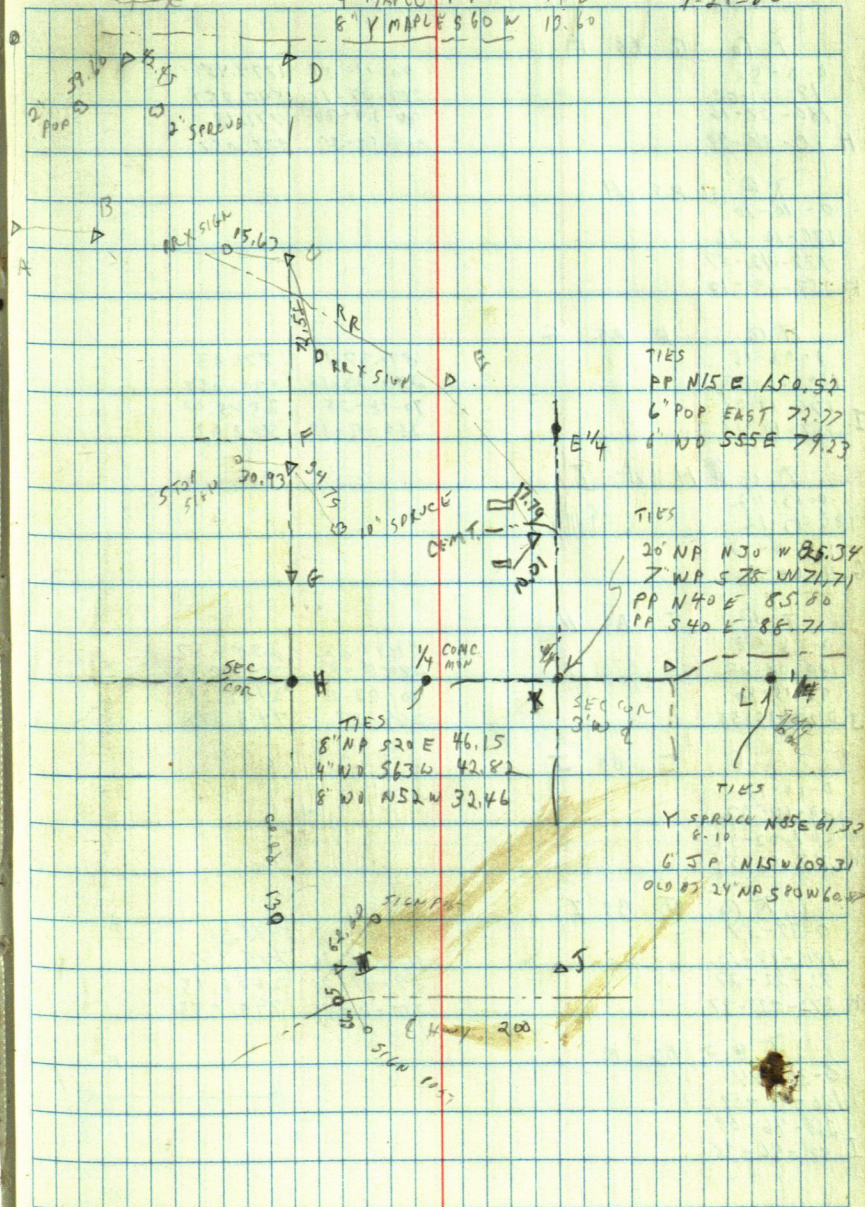 8" Y MAPLE S60 W 13.60
39.60
42.45
D
2" POP
2" SPRUCE
B
A
RRX SIGN
15.63
RR
RRX SIGN
TIES
PP N15 E 150.52
6" POP EAST 72.77
6" WO S55E 79.23
E 1/4
F
STOP SIGN
30.93
34.75
10" SPRUCE
17.79
CEMT.
TIES
20" NP N30 W 85.34
7" WP S78 W 71.71
PP N40 E 85.80
PP S40 E 88.71
G
SEC COR
H
1/4 CONC MON
K
SEC COR
3' W
L
TIES
8" NP S20 E 46.15
4" WO S63W 42.82
8" WO N52W 32.46
TIES
Y SPRUCE N85E 61.32
8-10
6" JP N15W 109.31
OLD BT 24" NP S80W
CO. RD 130
I
J
HWY 200
SIGN POST